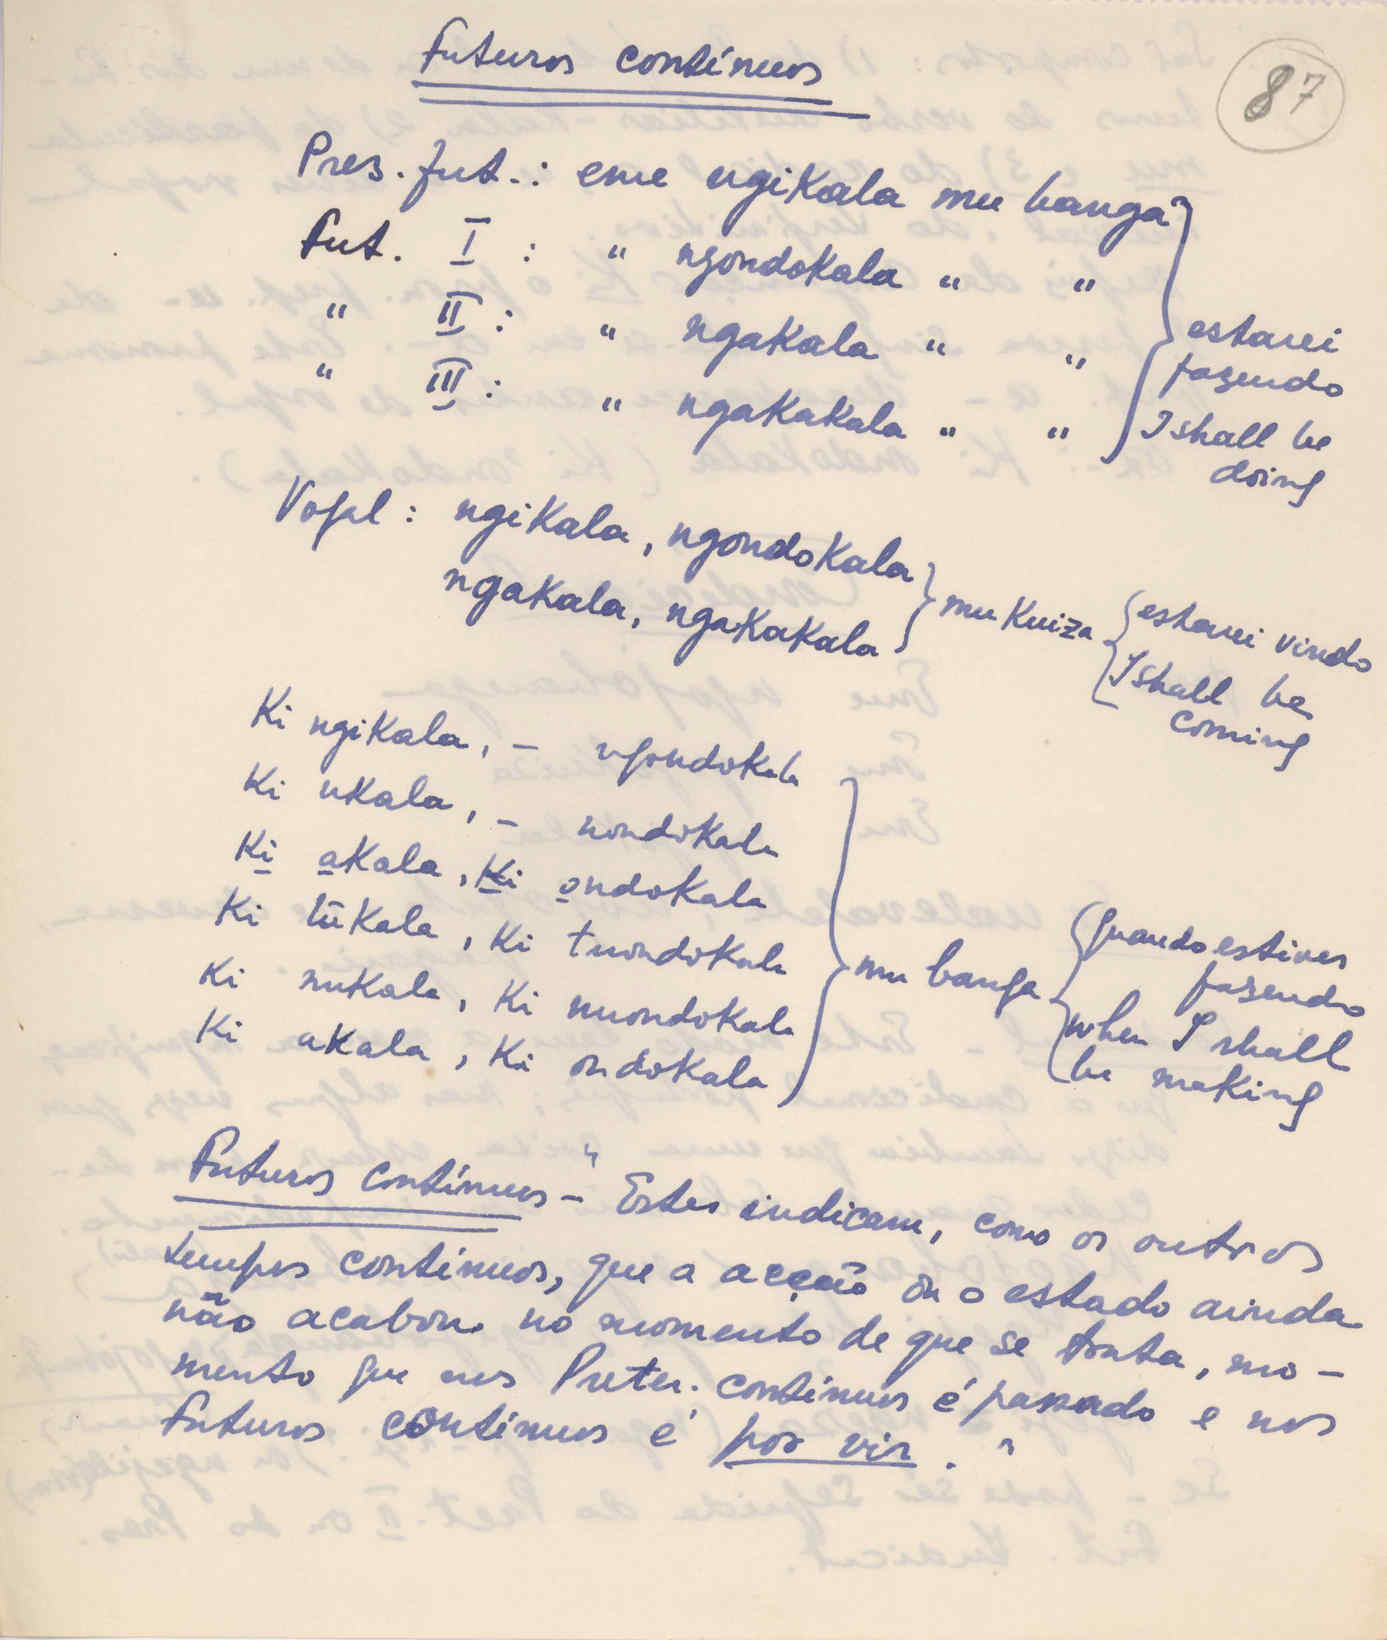 Futuros contínuos
87
Pres. fut.: eme ngikala mu banga
Fut. I : " ngondokala " "
" II : " ngakala " "
" III : " ngakakala " "
estarei
fazendo
I shall be
doing
Vogal : ngikala, ngondokala
ngakala, ngakakala
mu kuiza
estarei vindo
I shall be
coming
Ki ngikala, – ngondokala
Ki ukala, – uondokala
Ki akala, Ki ondokala
Ki tukala, Ki tuondokala
Ki nukala, Ki nuondokala
Ki akala, Ki ondokala
mu banga
Quando estiver
fazendo
when I shall
be making
Futuros contínuos – " Estes indicam, como os outros
tempos contínuos, que a acção ou o estado ainda
não acabou no momento de que se trata, mo-
mento que nos Preter. contínuos é passado e nos
Futuros contínuos é por vir. "